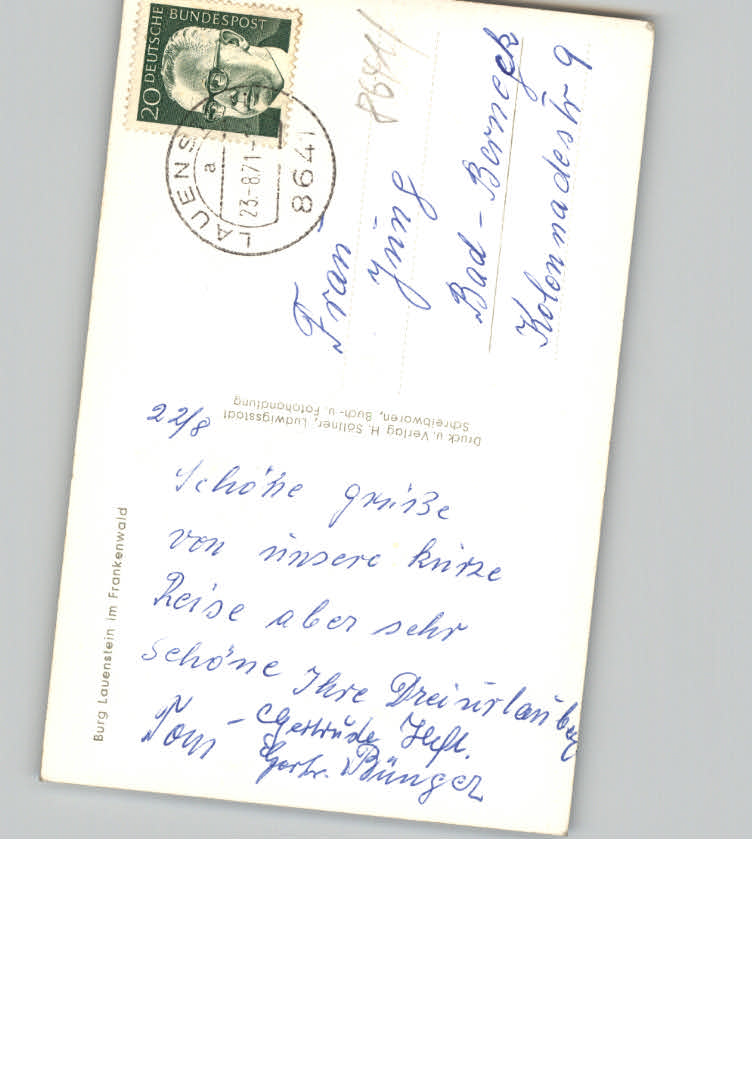 22/8
Schöne grüße
von unsere kurze
Reise aber sehr
schöne Ihre Dreiurlauber
Toni – Gertrude
Gertr. Bünger
Burg Lauenstein im Frankenwald
Druck u. Verlag H. Söllner, Ludwigsstadt
Schreibwaren, Buch- u. Fotohandlung
20 DEUTSCHE BUNDESPOST
LAUENS
a
23.-8.71-1
8641
8641
Frau
Jung
Bad-Berneck
Kolonnadestr 9